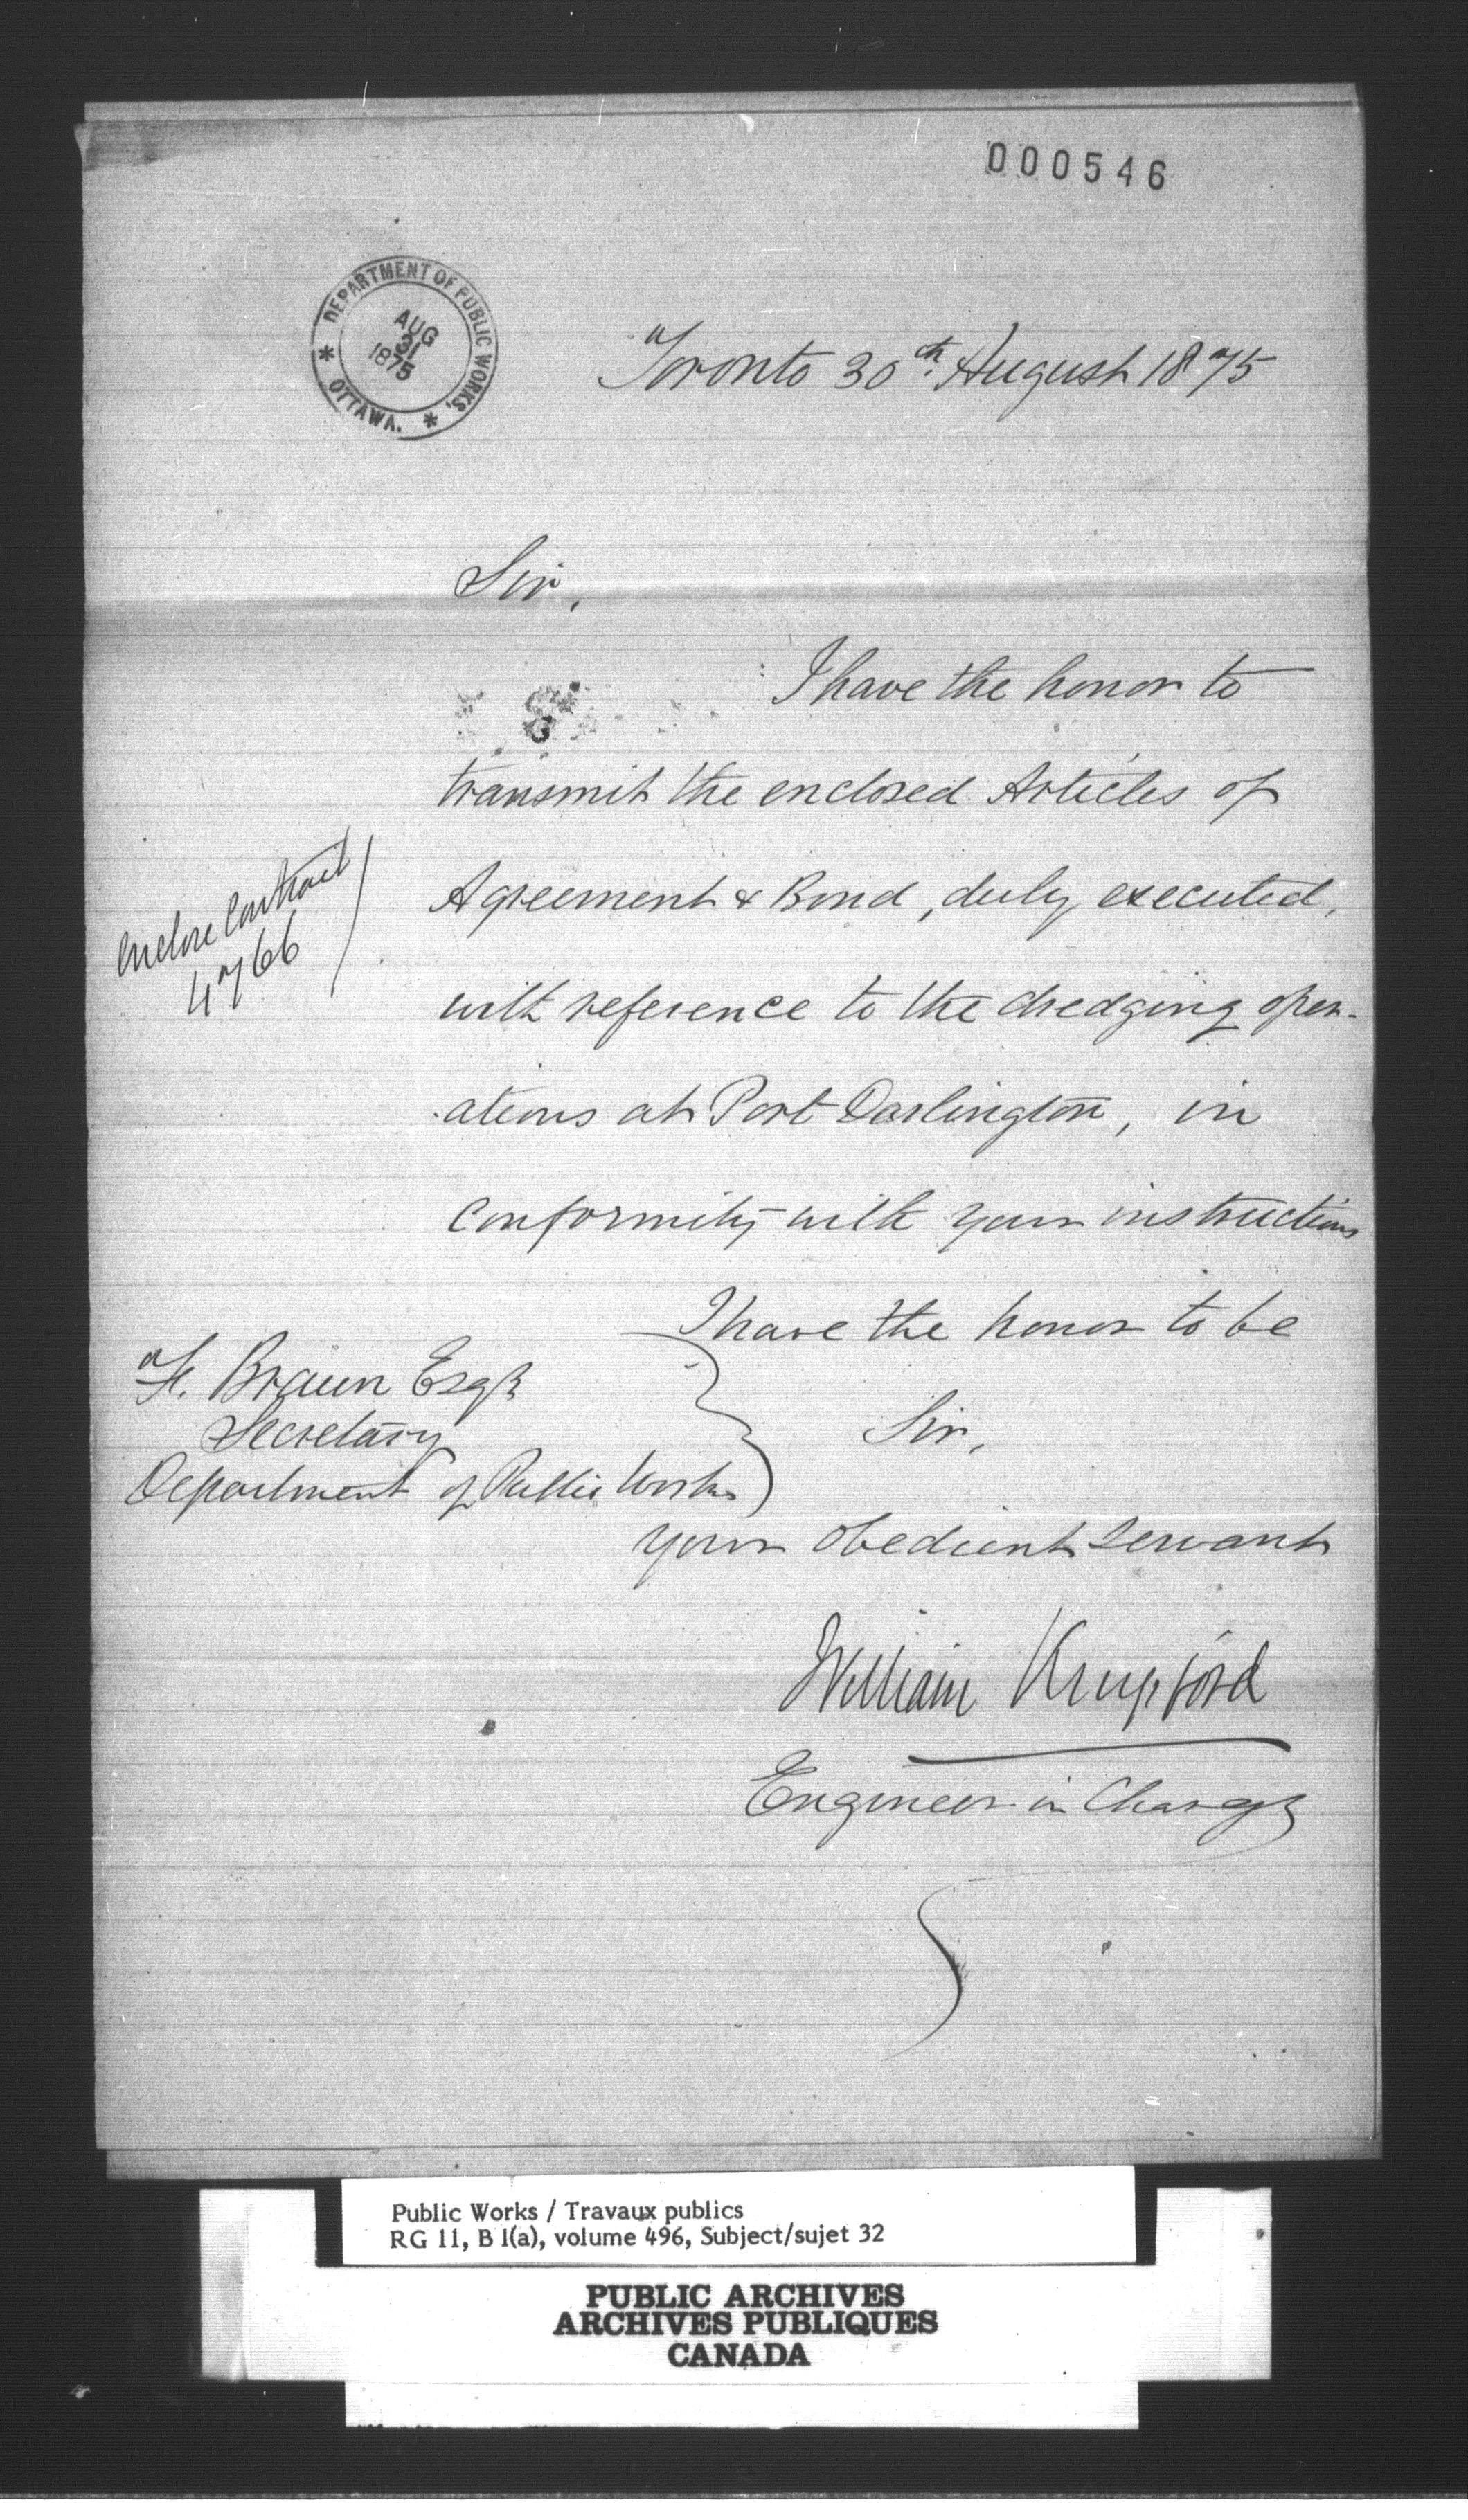 000546
DEPARTMENT OF PUBLIC WORKS,
AUG
31
1875
OTTAWA.
Toronto 30th. August 1875
Sir,
I have the honor to
transmit the enclosed Articles of
Agreement & Bond, duly executed,
with reference to the dredging oper-
ations at Port Darlington, in
conformity with your instructions
enclose Contract
4766
I have the honor to be
Sir,
F. Braun Esqr
Secretary
Department of Public Works
your obedient servant
William Kingsford
Engineer in Charge
Public Works / Travaux publics
RG 11, B 1(a), volume 496, Subject/sujet 32
PUBLIC ARCHIVES
ARCHIVES PUBLIQUES
CANADA